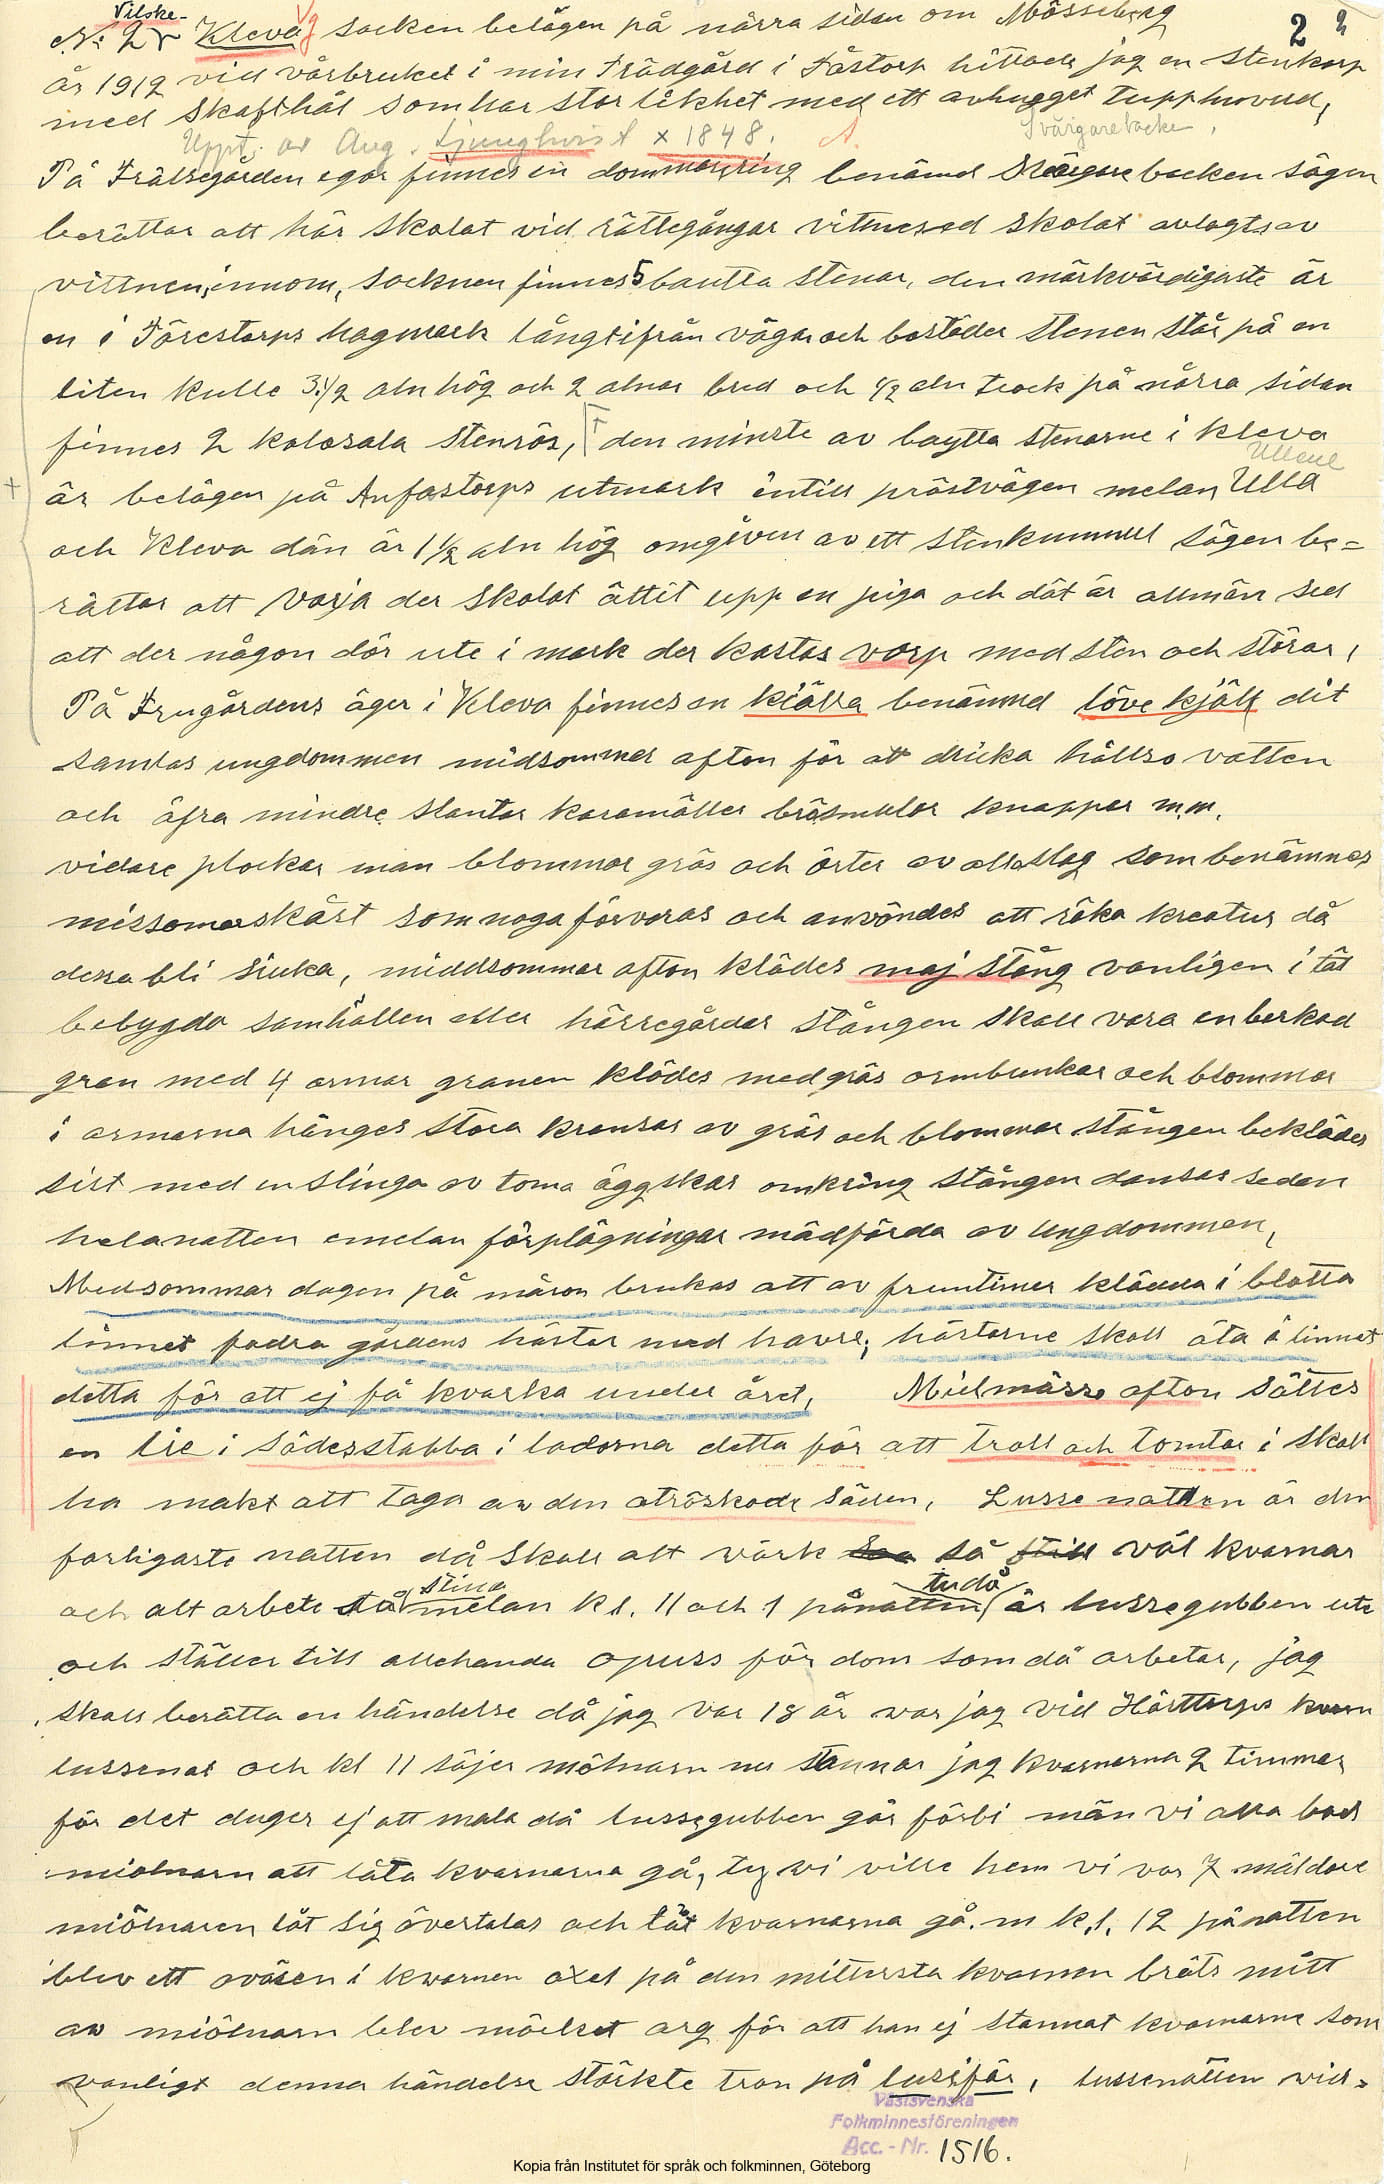 Vilske-
No 2 Kleva socken belägen på norra sidan om Mösseberg 2 2
år 1912 vid vårbruket i min Trädgård i Tåstorp hittade jag en stenkorp
med Skafthål som har stor likhet med ett avhugget tupphuvud,
Uppt. av Aug. Ljunghvist x 1848. A. Svärgarebacke,
På Frälsegården egor finnes en dommarring benämd Svärgarebacken sägen
berättar att här skolat vid rättegångar vittnesed skolat avlagts av
vittnen, innom, socknen finnes 5 bautta stenar, den märkvärdigaste är
en i Törestorps hagmark långt ifrån vägar och bostäder stenen står på en
liten kulle 3 1/2 aln hög och 2 alnar bred och 1/2 aln tjock på norra sidan
finnes 2 kolosala stenrös, den minste av bautta stenarne i Kleva
Ullene
är belägen på Anfastorps utmark intill prästvägen melan Ulla
och Kleva dän är 1 1/2 aln hög omgiven av ett stenkummel sägen be=
rättar att Varja der skolat ättit upp en piga och dät är allmän sed
att der någon dör ute i mark der kastas varp med sten och störar,
På Frugårdens äger i Kleva finnes en kiälla benämnd löve kjäll dit
samlas ungdommen midsommer afton för att dricka hällso vatten
och åfra mindre slantar karamäller brösmulor knappar m.m.
vidare plockar man blommor gräs och örter av alla slag som benämnes
missomarskäst som noga förvaras och användes att röka kreatur då
dessa bli siuka, middsommar afton klädes maj stång vanligen i tät
bebygda samhällen eller härregårdar stången skall vara en barkad
gran med 4 armar granen klädes med gräs ormbunkar och blommor
i armarna hänges stora kransar av gräs och blommor stången beklädes
sist med en slinga av toma äggskar omkring stången dansas sedan
helanatten emelan förplägningar mädförda av ungdommen,
Medsommar dagen på måron brukas att av fruntimer klädda i blotta
linnet fodra gårdens hästar med havre, hästarne skall äta å linnet
detta för att ej få kvarka under året, Mielmässo afton sättes
en lie i Sädesstabba i ladorna detta för att troll och tomtar i skall
ha makt att taga av den otröskade säden, Lusse natten är den
farligaste natten då skall alt värk så väl kvarnar
stilla tudå
och alt arbete stå melan kl. 11 och 1 pånatten är lussegubben ute
och ställer till allehanda opuss för dom som då arbetar, jag
skall berätta en händelse då jag var 18 år var jag vid Hörttorps kvarn
lussenat och kl 11 säjer mölnarn nu stannar jag kvarnarna 2 timmar
för det duger ej att mala då lussegubben går förbi män vi alla bad
miölnarn att låta kvarnarna gå, ty vi ville hem vi var 7 mäldare
miölnaren lät sig övertalas och lät kvarnarna gå. m k.l. 12 pånatten
blev ett oväsen i kvarnen axel på den mittersta kvarnen bräts mitt
av miölnarn blev möcket arg för att han ej stannat kvarnarne som
vanligt denna händelse stärkte tron på lusifär, lussenatten vid=
Västsvenska
Folkminnesföreningen
Acc. - Nr. 1516.
Kopia från Institutet för språk och folkminnen, Göteborg